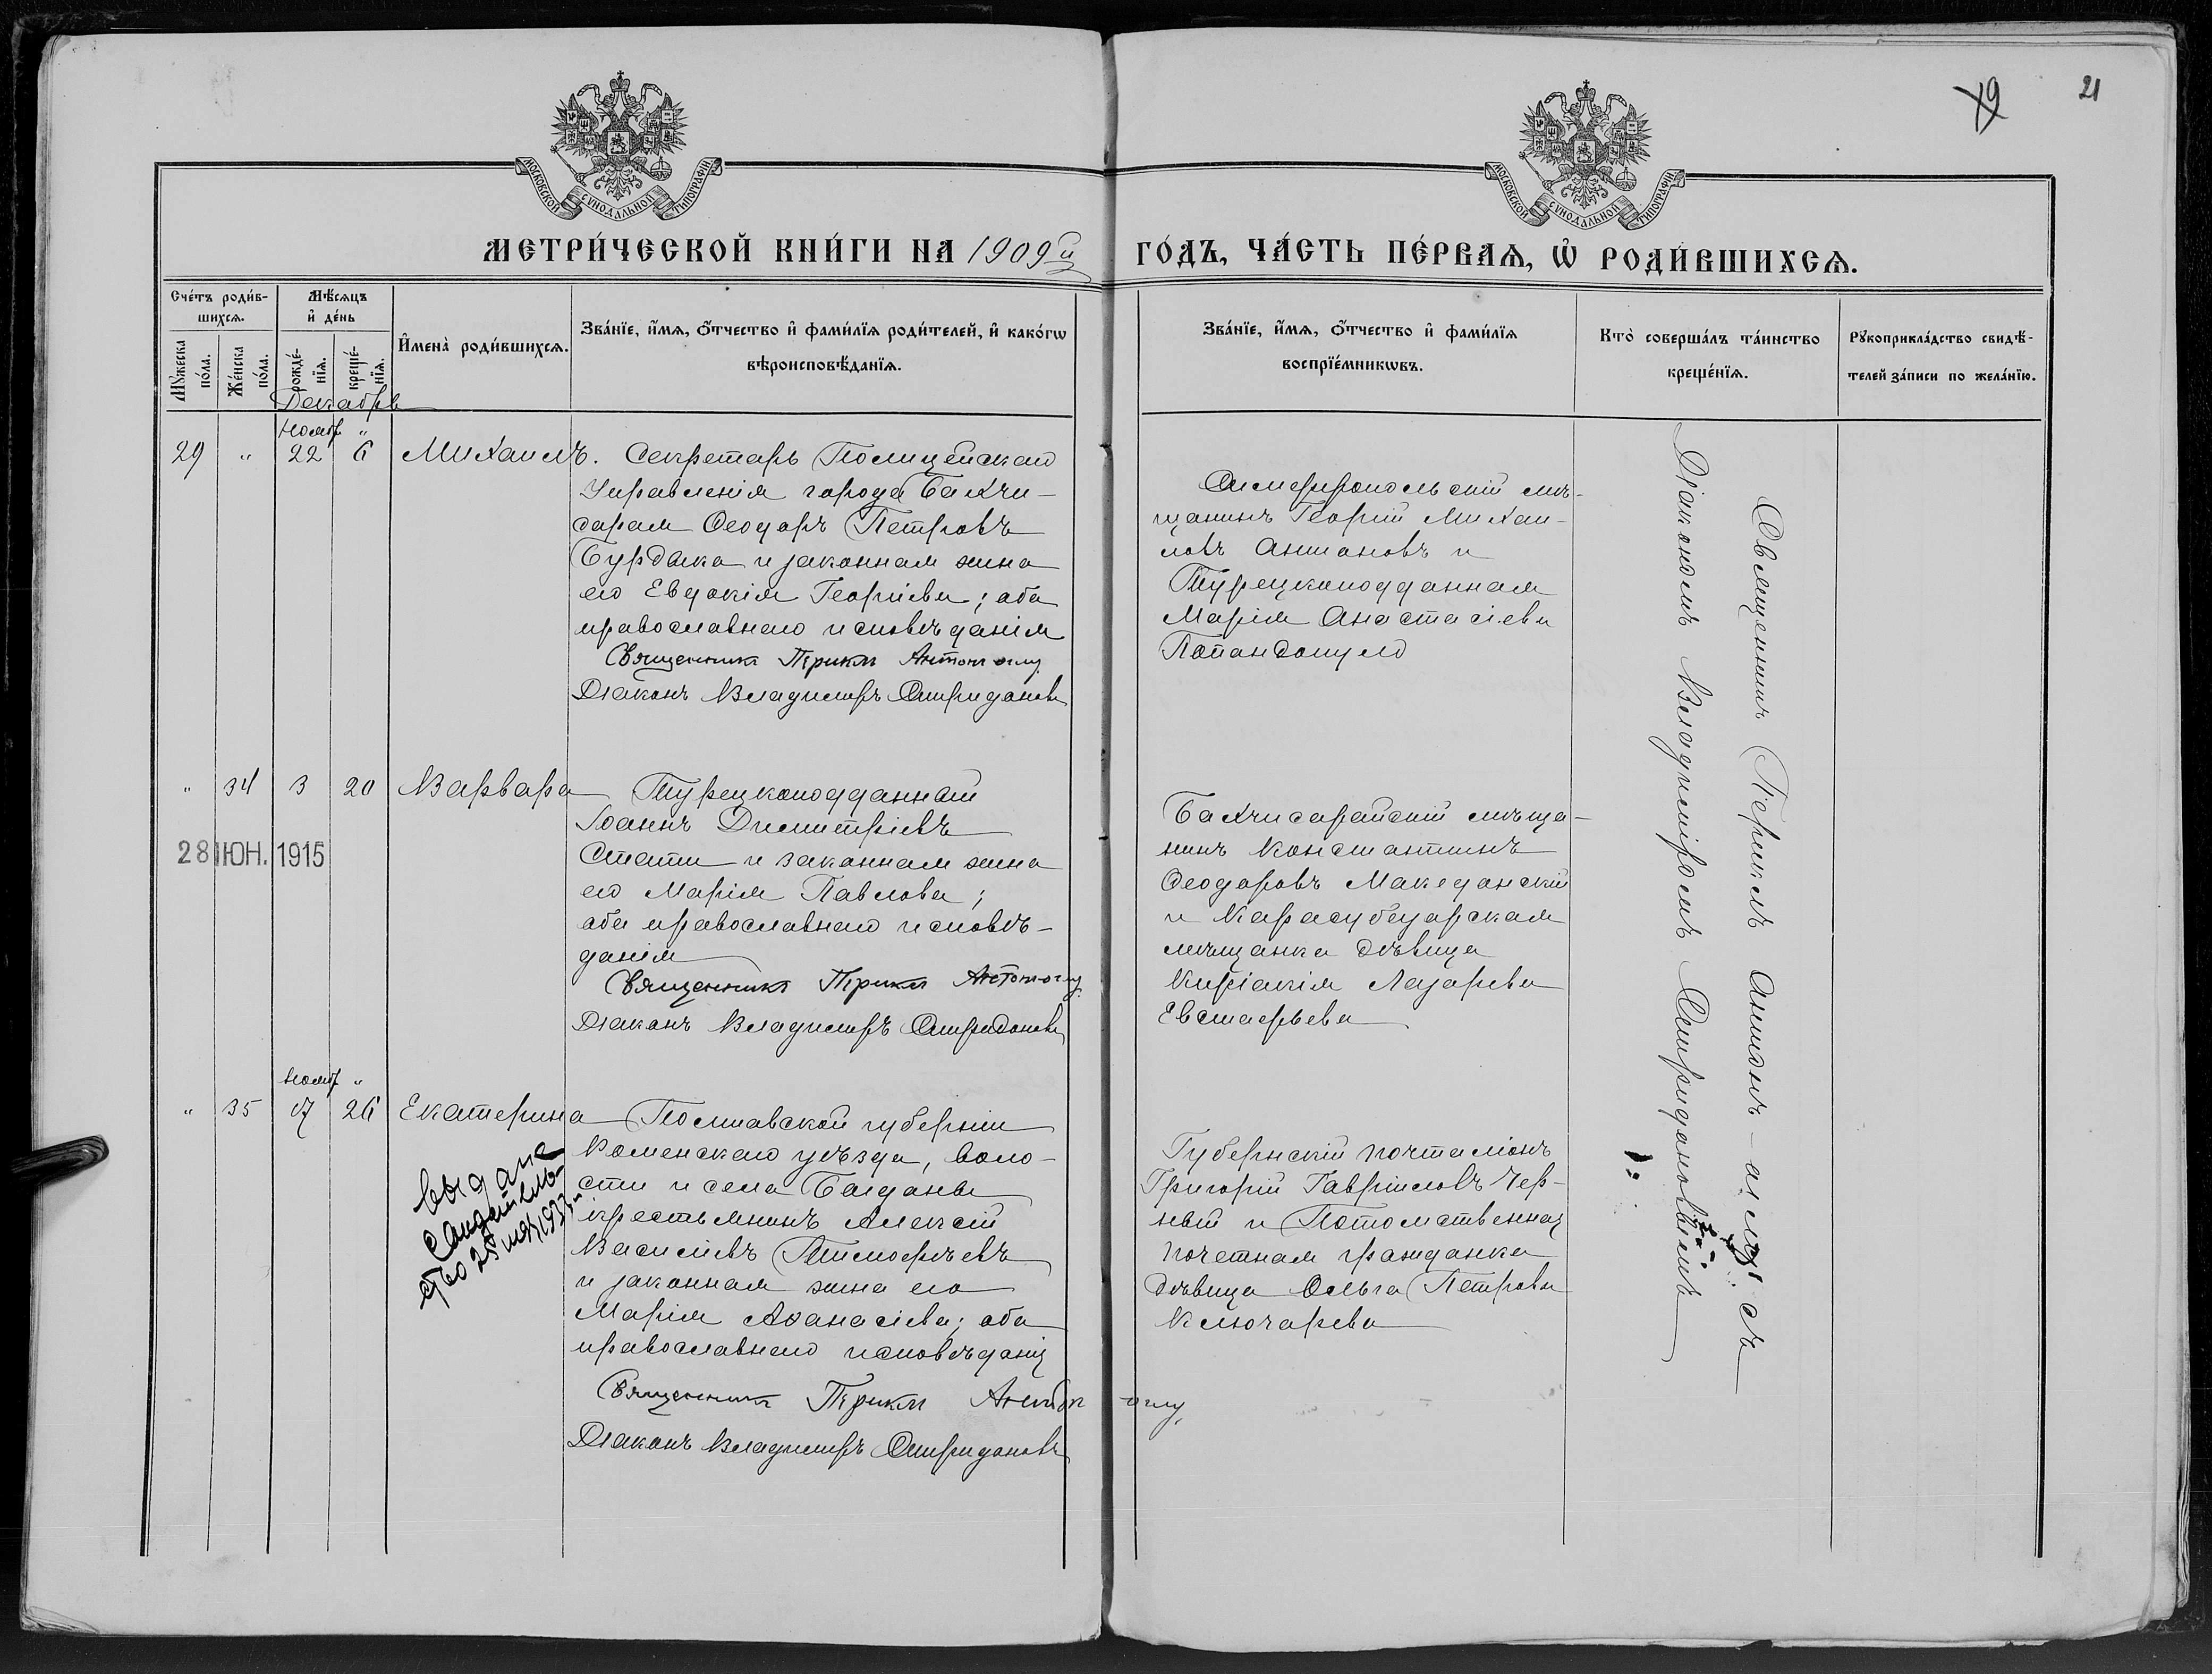 21
19
МОСКОВСКОЙ СѴНОДАЛЬНОЙ ТИПОГРАФІИ
МОСКОВСКОЙ СѴНОДАЛЬНОЙ ТИПОГРАФІИ
МЕТРИ́ЧЕСКОЙ КНИ́ГИ НА 1909й ГО́ДЪ, ЧА́СТЬ ПЕ́РВАѦ, Ѡ҆ РОДИ́ВШИХСѦ.
Сче́тъ роди́в-
шихсѧ.
Мꙋ́жеска по́ла.
Же́нска по́ла.
Мѣ́сѧцъ
и҆ де́нь
рожде́-
нїѧ.
креще́-
нїѧ.
И҆мена̀ роди́вшихсѧ.
Зва́нїе, и҆́мѧ, ѻ҆́тчество и҆ фами́лїѧ роди́телей, и҆ како́гѡ
вѣроисповѣ́данїѧ.
Зва́нїе, и҆́мѧ, ѻ҆́тчество и҆ фами́лїѧ
воспрїе́мникѡвъ.
Кто̀ соверша́лъ та́инство
креще́нїѧ.
Рꙋкоприкла́дство свидѣ́-
телей за́писи по жела́нїю.
Декабрь
Ноябр. "
29 " 22 6 Михаилъ.
Секретарь Полицейскаго
Управленія города Бахчи-
сарая Ѳеодоръ Петровъ
Бурдыка и законная жена
его Евдокія Георгіева; оба
православнаго исповѣданія
Священникъ Периклъ Антон-оглу.
Діаконъ Владимиръ Спиридоновъ
Симферопольскій мѣ-
щанинъ Георгій Михаи-
ловъ Антоновъ и
Турецкоподданная
Марія Анастасіева
Попандопуло
" 34 3 20 Варвара
28 ІЮН. 1915
Турецкоподданный
Іоаннъ Димитріевъ
Стати и законная жена
его Марія Павлова;
оба православнаго исповѣ-
данія
Священникъ Периклъ Антон-оглу.
Діаконъ Владимиръ Спиридоновъ
Бахчисарайскій мѣща-
нинъ Константинъ
Ѳеодоровъ Македонскій
и Карасубазарская
мѣщанка дѣвица
Киріакія Лазарева
Евстафьева
Ноябр. "
" 35 17 26 Екатерина
выдано
свидѣтель-
ство 25
Полтавской губерніи
Роменскаго уѣзда, воло-
сти и села Богданы
крестьянинъ Алексій
Василіевъ Тимофѣевъ
и законная жена его
Марія Аѳанасіева; оба
православнаго исповѣданія
Священникъ Периклъ Антон-оглу.
Діаконъ Владимиръ Спиридоновъ
Губернскій почталіонъ
Григорій Гавріиловъ Чер-
ный и Потомственная
почетная гражданка
дѣвица Ольга Петрова
Ключарева
Священникъ Периклъ Антонъ-оглу съ
Діакономъ Владиміромъ Спиридоновымъ